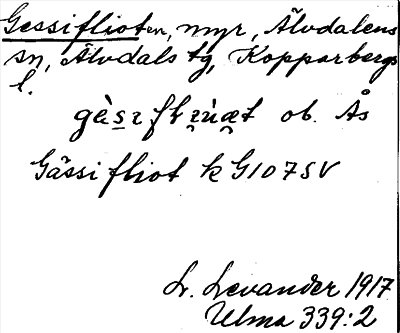 Gessifliot en, myr, Älvdalens
sn, Älvdals tg, Kopparbergs
l.
gès̱ɪflɪ̯ùæ̯t ob. Ås
Gässifliot k G107SV
L. Levander 1917
Ulma 339:2